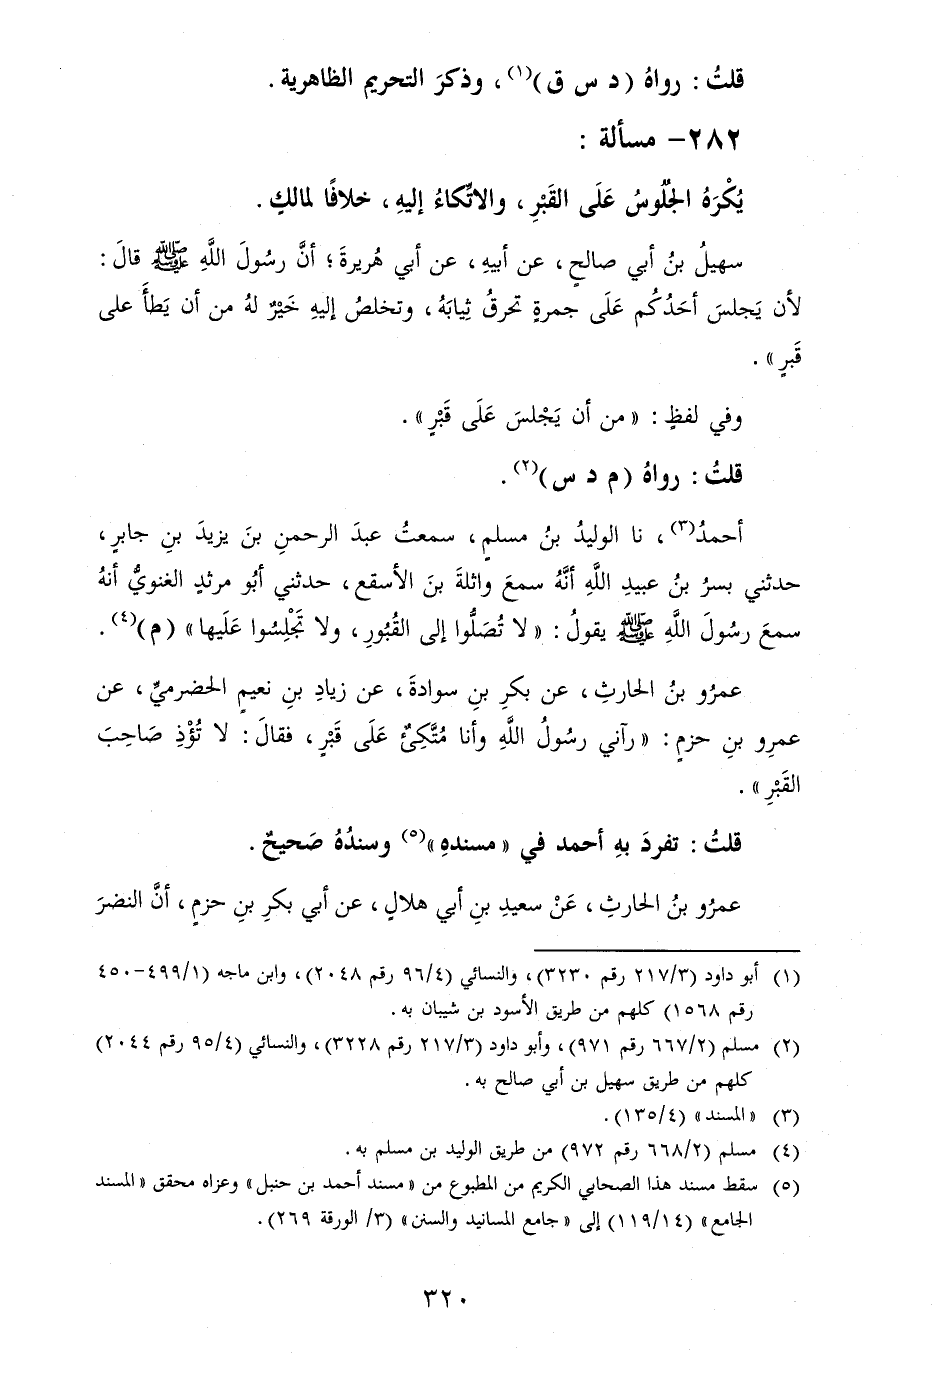 قلتُ : رواهُ (د س ق)(١)، وذكرَ التحريم الظاهرية .
٢٨٢- مسألة :
يُكْرَهُ الجُلُوسُ عَلَى القَبْرِ ، والاتِّكاءُ إليهِ ، خلافًا لمالكٍ .
سهيلُ بنُ أبي صالحٍ ، عن أبيهِ ، عن أبي هُريرةَ ؛ أنَّ رسُولَ اللَّهِ ﷺ قالَ :
لأن يَجلسَ أحَدُكُم عَلَى جمرةٍ تحرقُ ثِيابَهُ ، وتخلصُ إليهِ خَيْرٌ لهُ من أن يَطأَ على
قَبرٍ » .
وفي لفظٍ : « من أن يَجْلسَ عَلَى قَبْرٍ » .
قلتُ : رواهُ (م د س)(٢) .
أحمدُ(٣) ، نا الوليدُ بنُ مسلمٍ ، سمعتُ عبدَ الرحمنِ بنَ يزيدَ بنِ جابرٍ ،
حدثني بسرُ بنُ عبيدِ اللَّهِ أنَّهُ سمعَ واثلةَ بنَ الأسقعِ ، حدثني أبُو مرثدٍ الغنويُّ أنهُ
سمعَ رسُولَ اللَّهِ ﷺ يقولُ : « لا تُصَلُّوا إلى القُبُورِ ، ولا تَجْلِسُوا عَلَيها » (م)(٤) .
عمرُو بنُ الحارثِ ، عن بكرِ بنِ سوادةَ ، عن زيادِ بنِ نعيمٍ الحضرميِّ ، عن
عمرِو بنِ حزمٍ : « رآني رسُولُ اللَّهِ وأنا مُتَّكِئٌ عَلَى قَبْرٍ ، فقالَ : لا تُؤْذِ صَاحِبَ
القَبْرِ » .
قلتُ : تفردَ بهِ أحمد في « مسندهِ »(٥) وسندُهُ صَحيحٌ .
عمرُو بنُ الحارثِ ، عَنْ سعيدِ بنِ أبي هلالٍ ، عن أبي بكرِ بنِ حزمٍ ، أنَّ النضرَ
(١) أبو داود (٢١٧/٣ رقم ٣٢٣٠)، والنسائي (٩٦/٤ رقم ٢٠٤٨)، وابن ماجه (٤٩٩/١-٤٥٠
رقم ١٥٦٨) كلهم من طريق الأسود بن شيبان به .
(٢) مسلم (٦٦٧/٢ رقم ٩٧١)، وأبو داود (٢١٧/٣ رقم ٣٢٢٨)، والنسائي (٩٥/٤ رقم ٢٠٤٤)
كلهم من طريق سهيل بن أبي صالح به .
(٣) « المسند » (١٣٥/٤) .
(٤) مسلم (٦٦٨/٢ رقم ٩٧٢) من طريق الوليد بن مسلم به .
(٥) سقط مسند هذا الصحابي الكريم من المطبوع من « مسند أحمد بن حنبل » وعزاه محقق « المسند
الجامع » (١١٩/١٤) إلى « جامع المسانيد والسنن » (٣/ الورقة ٢٦٩).
٣٢٠